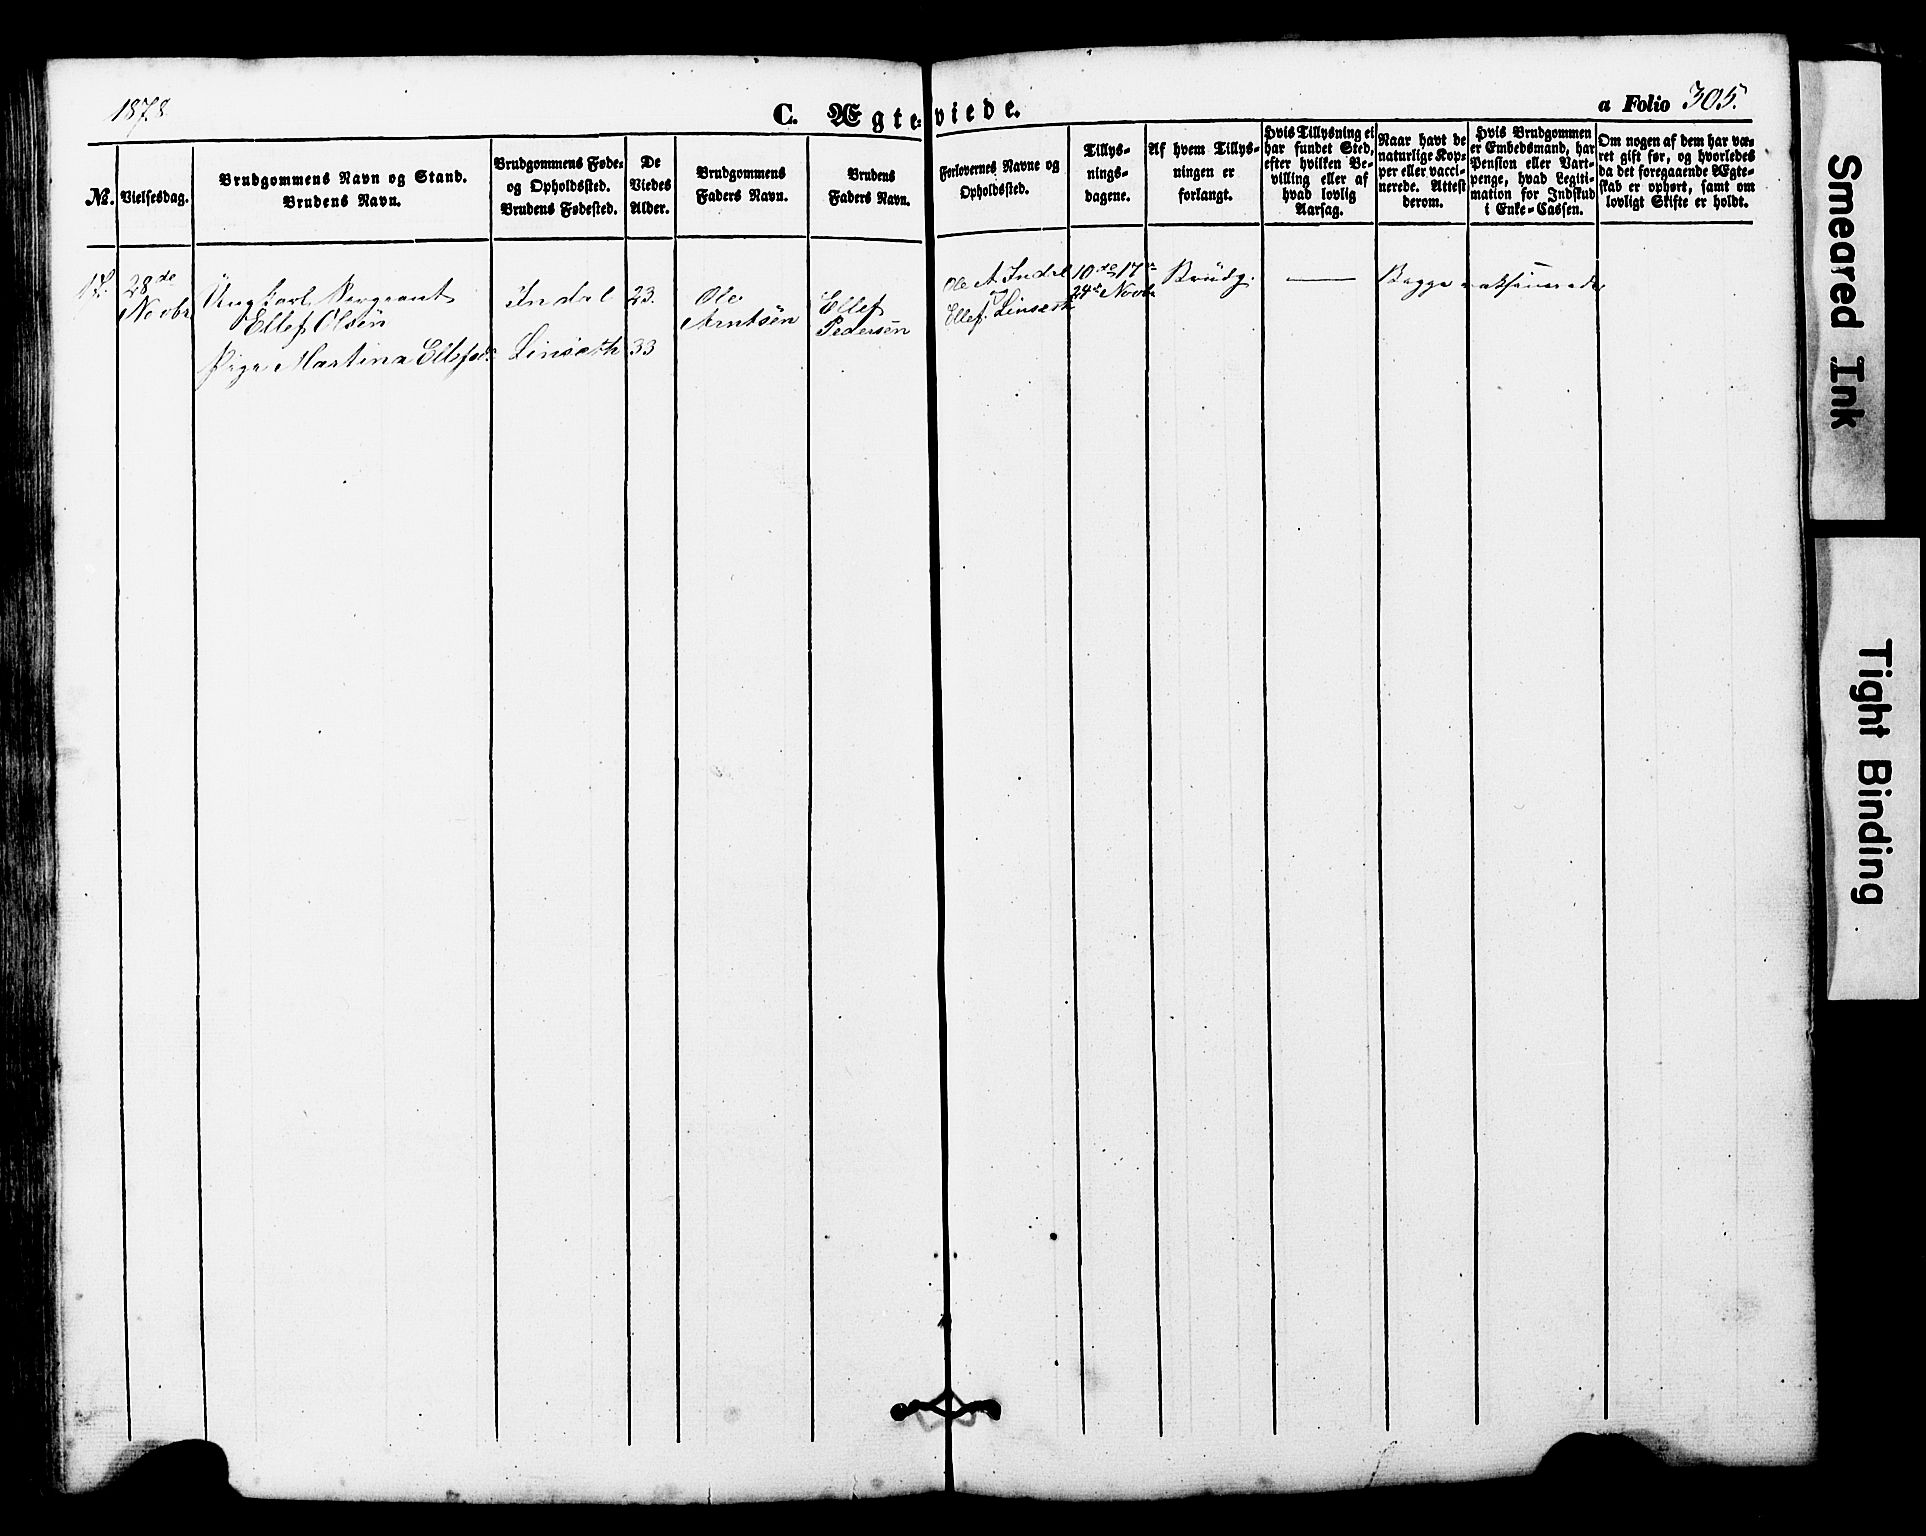 1878
C. Ægteviede.
a Folio 305.
No.
Vielsesdag.
Brudgommens Navn og Stand.
Brudens Navn.
Brudgommens Føde-
og Opholdssted.
Brudens Fødested.
De
Viedes
Alder.
Brudgommens
Faders Navn.
Brudens
Faders Navn.
Forlovernes Navne og
Opholdssted.
Tillys-
nings-
dagene.
Af hvem Tillys-
ningen er
forlangt.
Hvis Tillysning ei
har fundet Sted,
efter hvilken Be-
villing eller af
hvad lovlig
Aarsag.
Naar havt de
naturlige Kop-
per eller vacci-
nerede. Attest
derom.
Hvis Brudgommen
er Embedsmand, har
Pension eller Vart-
penge, hvad Legiti-
mation for Indskud
i Enke-Cassen.
Om nogen af dem har væ-
ret gift før, og hvorledes
da det foregaaende Ægte-
skab er ophørt, samt om
lovligt Skifte er holdt.
28de
Novbr
Ungkarl Sergeant
Ellef Olsen
Pige Martina Ellefsd.
Indal
Linseth
23.
33
Ole
Arntsen
Ellef
Pedersen
Ole A. Indal
Ellef Linseth
10de 17de
24de Novbr
Brudg.
—
Begge vaksinerede
Smeared Ink
Tight Binding